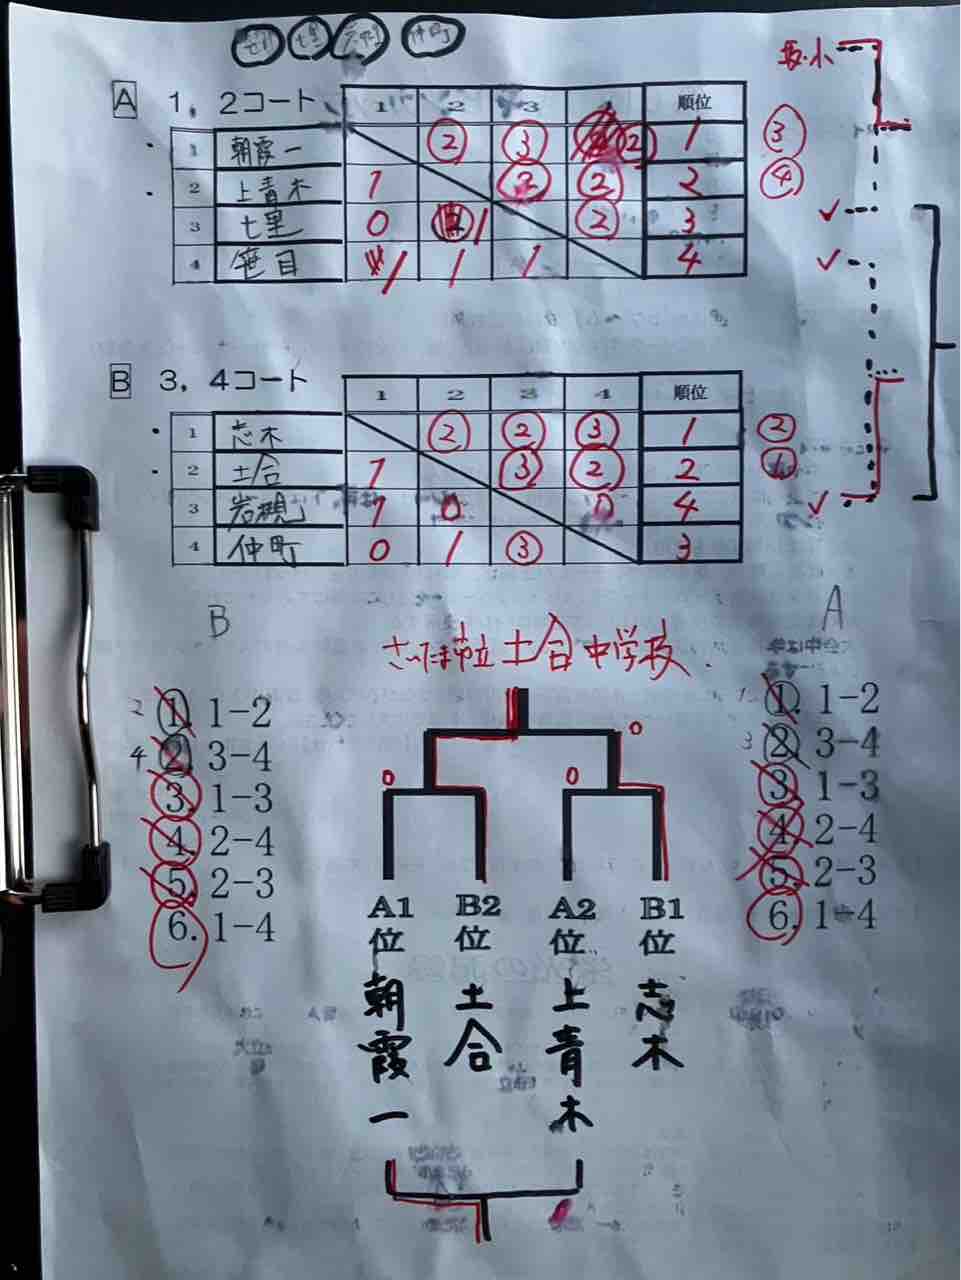 七里 仲町
坂・小
A 1,2コート 1 2 3 順位
1 朝霞一 ② ③ ② 1 ③
2 上青木 1 ② ② 2 ④
3 七里 0 1 ② 3
4 笹目 1 1 1 4
B 3,4コート 1 2 3 4 順位
1 志木 ② ② ③ 1 ②
2 土合 1 ③ ② 2 ①
3 岩槻 1 0 0 4
4 仲町 0 1 ③ 3
B
A
さいたま市立土合中学校
2 1. 1-2
4 2. 3-4
3. 1-3
4. 2-4
5. 2-3
6. 1-4
1 1. 1-2
3 2. 3-4
3. 1-3
4. 2-4
5. 2-3
6. 1-4
0
0 0
A1位 B2位 A2位 B1位
朝霞一 土合 上青木 志木